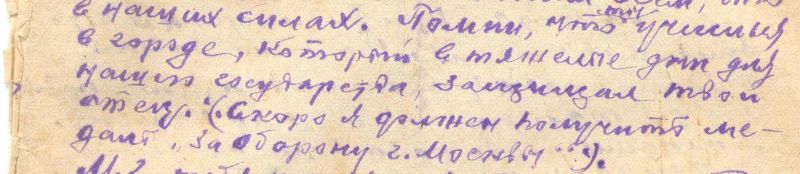 в наших силах. Помни, что ты учишься
в городе, который в тяжелые дни для
нашего государства, защищал твой
отец. (Скоро я должен получить ме-
даль "За оборону г. Москвы").